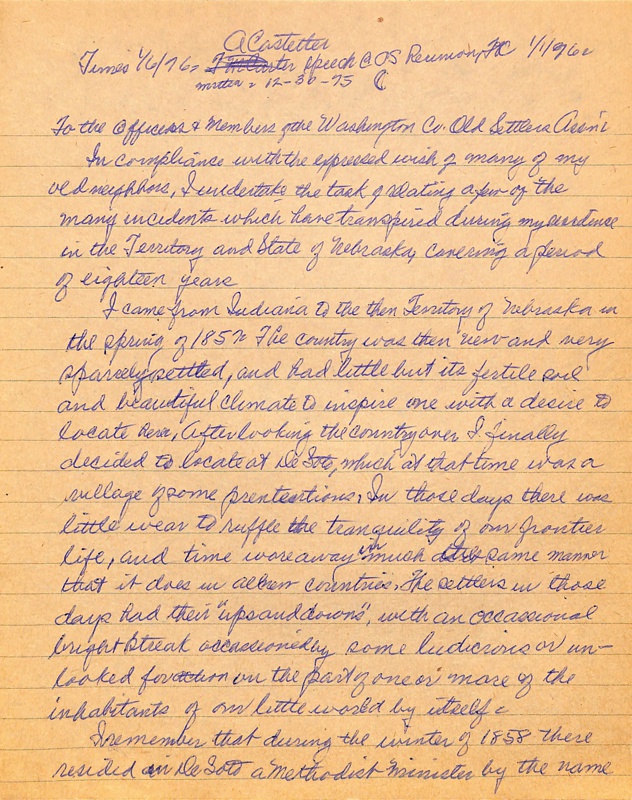 A Castetter
Times 1/6/76 = speech @ OS Reunion, 1/1/1962
written = 12-30-75
To the Officers & Members of the Washington Co. Old Settlers Assn:
In compliance with the expressed wish of many of my
old neighbors, I undertake the task of relating a few of the
many incidents which have transpired during my residence
in the Territory and State of Nebraska, covering a period
of eighteen years
I came from Indiana to the then Territory of Nebraska in
the spring of 1857. The country was then new and very
sparcely settled, and had little but its fertile soil
and beautiful climate to inspire one with a desire to
locate here. After looking the country over I finally
decided to locate at De Soto, which at that time was a
village of some prententions. In those days there was
little wear to ruffle the tranquility of our frontier
life, and time wore away in much same manner
that it does in all new countries. The settlers in those
days had their "ups and downs", with an occassional
bright streak occassioned by some ludicrous or un-
looked for action on the part of one or more of the
inhabitants of our little world by itself.
I remember that during the winter of 1858 there
resided in De Soto a Methodist Minister by the name